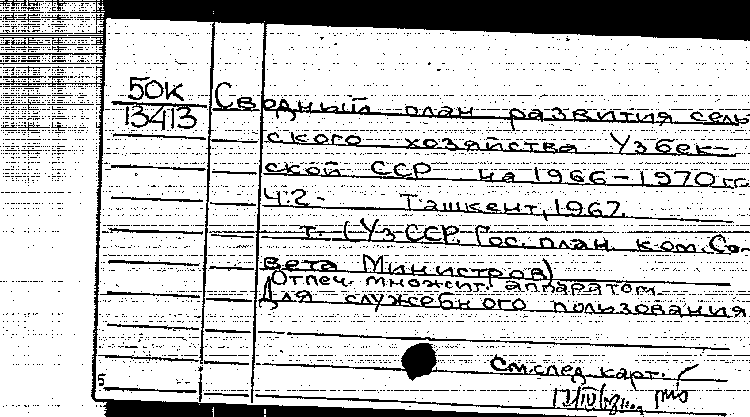 50К
13413
Сводный план развития сель
ского хозяйства Узбек-
ской ССР на 1966-1970 гг.
Ч.2- Ташкент, 1967.
т. (Уз ССР. Гос. план. ком. Со-
вета Министров)
Отпеч. множит. аппаратом
Для служебного пользования
См. след. карт.
5